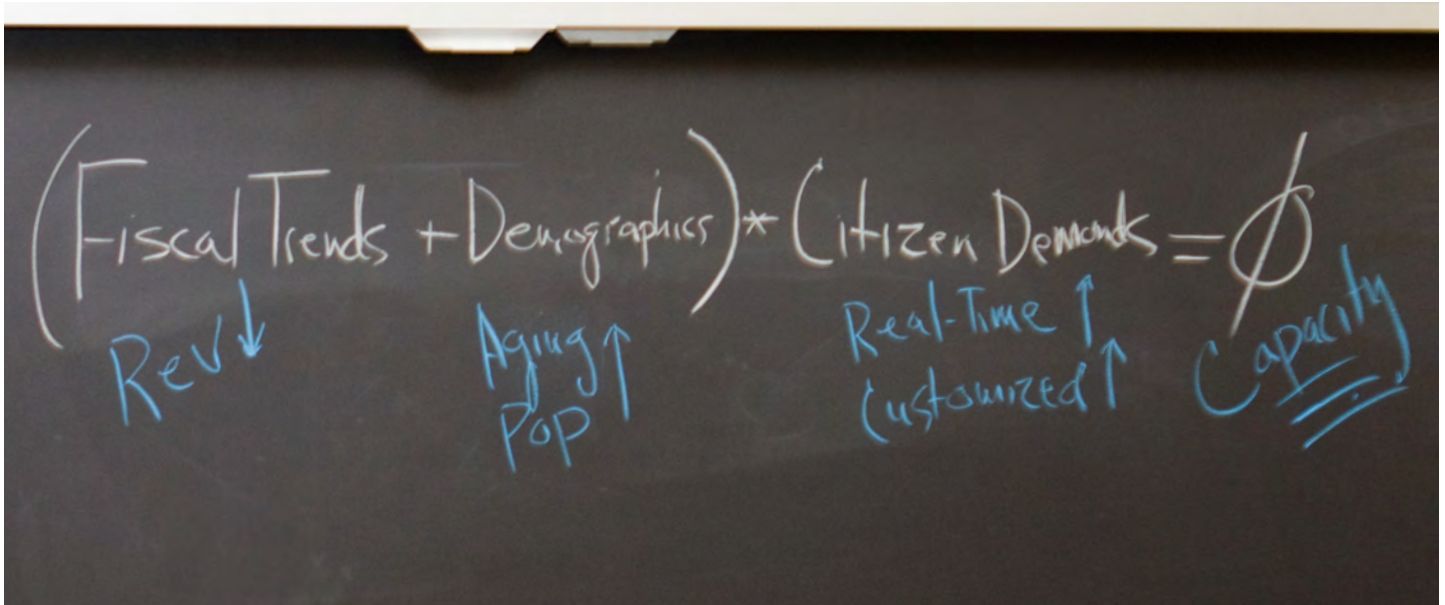 (Fiscal Trends + Demographics) * Citizen Demands = ∅
Rev ↓
Aging ↑
Pop
Real-Time ↑
Customized ↑
Capacity